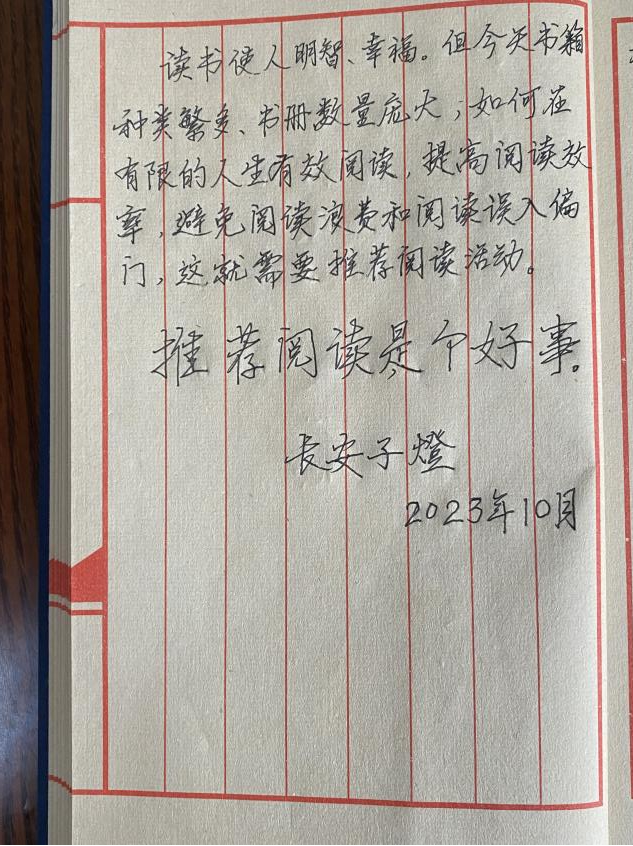 读书使人明智、幸福。但今天书籍
种类繁多、书册数量庞大；如何在
有限的人生有效阅读，提高阅读效
率，避免阅读浪费和阅读误入偏
门，这就需要推荐阅读活动。
推荐阅读是个好事。
长安子燈
2023年10月